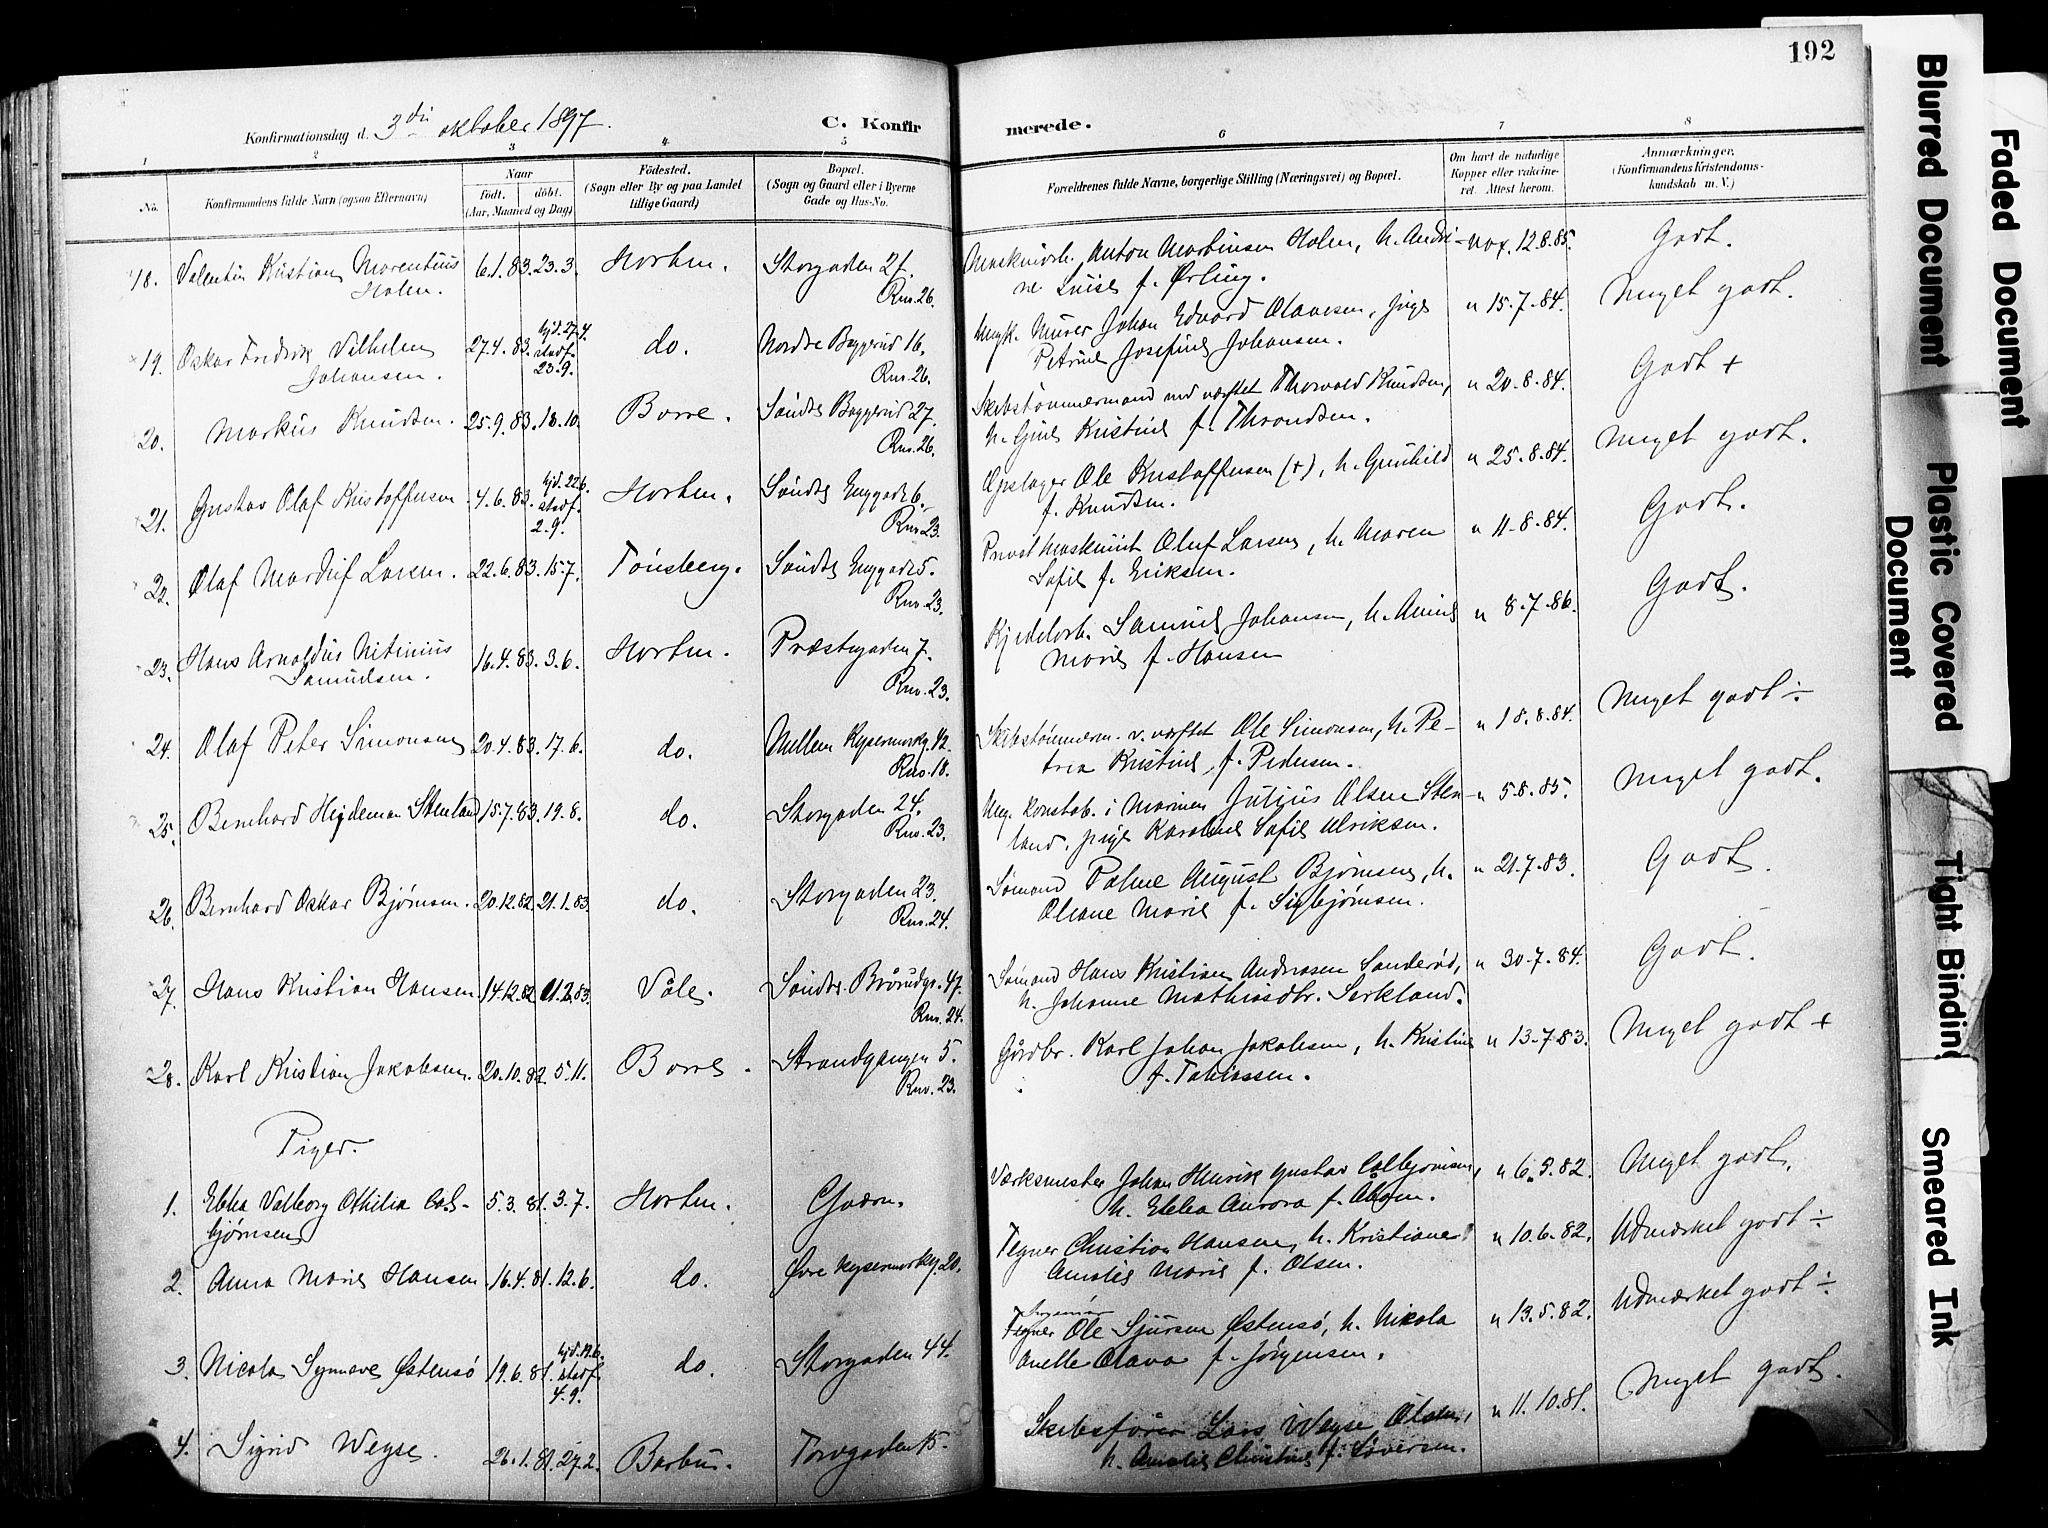 192
Konfirmationsdag d. 3die oktober 1897.
C. Konfirmerede.
1 2 3 4 5 6 7 8
No.
Konfirmandens fulde Navn (ogsaa Efternavn)
Naar
födt. döbt.
(Aar, Maaned og Dag)
Födested.
(Sogn eller By og paa Landet
tillige Gaard)
Bopæl.
(Sogn og Gaard eller i Byerne
Gade og Hus-No.
Forældrenes fulde Navne, borgerlige Stilling (Næringsvei) og Bopæl.
Om havt de naturlige
Kopper eller vaccine-
ret. Attest herom.
Anmærkninger.
(Konfirmandens Kristendoms-
kundskab m. V.)
18. Valentin Kristian Morentius 6.1.83. 23.3. Horten. Storgaden 21. Maskinarb. Anton Martinsen Holm, h. Andri- vax. 12.8.85. Godt.
Holm. Rns. 26. ne Luise f. Ørling.
19. Oskar Fredrik Vilhelm 27.4.83. hjd. 27.4. do. Nordre Baggerud 16. Ungk. Murer Johan Edvard Olavesen, pige " 15.7.84. Meget godt.
Johansen. stadf. 23.9. Rns. 26. Petrine Josefine Johansen.
20. Markus Knudsen. 25.9.83. 18.10. Borre. Søndre Baggerud 27. Skibstømmermand ved værftet Thorvald Knudsen, " 20.8.84. Godt +
Rns. 26. h. Gine Kristine f. Throndsen.
21. Gustav Olaf Kristoffersen 4.6.83. hjd. 22.6. Horten. Søndre Enggade 6. Opslager Ole Kristoffersen (+), h. Gunhild " 25.8.84. Meget godt.
stadf. 2.9. Rns. 23. f. Knudsen.
22. Olaf Marduf Larsen. 22.6.83. 15.7. Tønsberg. Søndre Enggade 5. Privat maskinist Oluf Larsen, h. Maren " 11.8.84. Godt.
Rns. 23. Sofie f. Eriksen.
23. Hans Arnoldus Nitinius 16.4.83. 3.6. Horten. Præstegaden 7. Kjedelarb. Samuel Johansen, h. Amine " 8.7.86. Godt.
Samuelsen. Rns. 23. Marie f. Hansen
24. Olaf Peter Simonsen 20.4.83. 17.6. do. Mellem Keysermarkg. 42. Skibstømmerm. v. værftet Ole Simonsen, h. Pe- " 18.8.84. Meget godt ÷
Rns. 18. trea Kristine, f. Pedersen.
25. Bernhard Hejdeman Stenland 15.7.83. 19.8. do. Storgaden 24. Ung. konstab. i Marinen Julius Olsen Sten- " 5.8.85. Meget godt.
Rns. 23. land, pige Karoline Sofie Ulriksen.
26. Bernhard Oskar Bjørnsen. 20.12.82. 21.1.83. do. Storgaden 23. Sømand Palme August Bjørnsen, h. " 21.7.83. Godt.
Rns. 24. Oleane Marie f. Sigbjørnsen.
27. Hans Kristian Hansen 14.12.82. 11.2.83. Våle. Søndre Brårudg. 47. Sømand Hans Kristian Andreasen Sanderød, " 30.7.84. Godt.
Rns. 24. h. Johanne Mathiasdtr. Serkland.
28. Karl Kristian Jakobsen. 20.10.82. 5.11. Borre. Strandgangen 5. Gårdbr. Karl Johan Jakobsen, h. Kristine " 13.7.83. Meget godt +
Rns. 23. f. Tobiassen.
Piger.
1. Ebba Valborg Othilia Col- 5.3.81. 3.7. Horten. Gaarn. Værksmester Johan Henrik Gustav Colbjørnsen, " 6.9.82. Meget godt.
bjørnsen h. Ebba Aurora f. Åbom.
2. Anna Marie Hansen 16.4.81. 12.6. do. Øvre Keysermarkg. 20. Tegner Christian Hansen, h. Kristiane " 10.6.82. Udmærket godt ÷
Amalie Marie f. Olsen.
3. Nicola Synneve Østensø 19.6.81. hjd. 19.6. do. Storgaden 44. Ingeniør
Tegner Ole Sjursen Østensö, h. Nikola " 13.5.82. Udmærket godt ÷
stadf. 4.9. Anette Olava f. Jörgensen.
4. Sigrid Weyse. 26.1.81. 27.2. Barbu. Torvgaden 15. Skibsfører Lars Weyse Olsen, " 11.10.81. Meget godt.
h. Amalie Christine f. Siversen.
Faded Document
Blurred Document
Plastic Covered
Document
Tight Binding
Smeared Ink